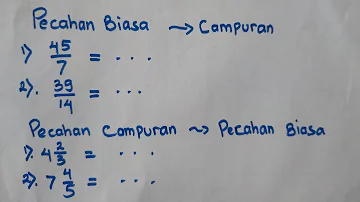 Pecahan Biasa → Campuran
1). 45/7 = ...
2). 39/14 = ...
Pecahan Campuran → Pecahan Biasa
1). 4 2/3 = ...
2). 7 4/5 = ...